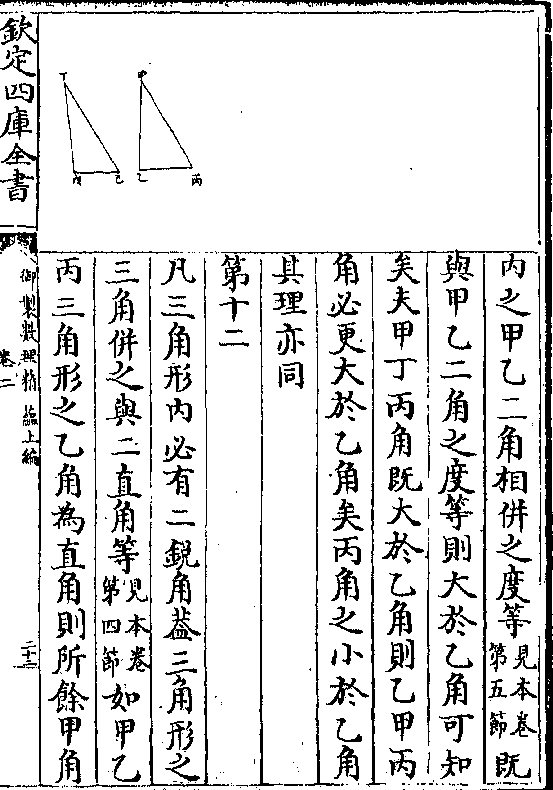 丙之甲乙二角相併之度等見本卷第五節既
與甲乙二角之度等則大於乙角可知
矣夫甲丁丙角既大於乙角則乙甲丙
角必更大於乙角矣丙角之小於乙角
其理亦同
第十二
凡三角形內必有二銳角葢三角形之
三角併之與二直角等見本卷第四節如甲乙
丙三角形之乙角為直角則所餘甲角
甲
乙
丙
丁
戊
己
欽定四庫全書
御製數理精蘊上編
卷二
二十三